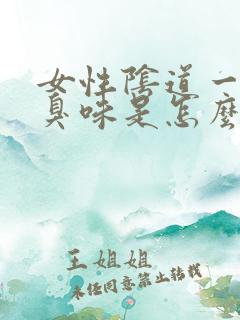 女性陰道一
臭味是怎麼
王姐姐
未经同意禁止转载